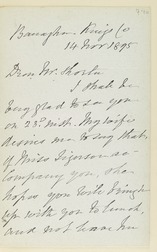 Banagher, King's Co
14 Nov 1895
Dear Mr. Shorter
I shall be
very glad to see you
on 23rd inst. My wife
desires me to say that,
if Miss Sigerson ac-
company you, she
hopes you will bring
her with you to lunch,
and not leave her